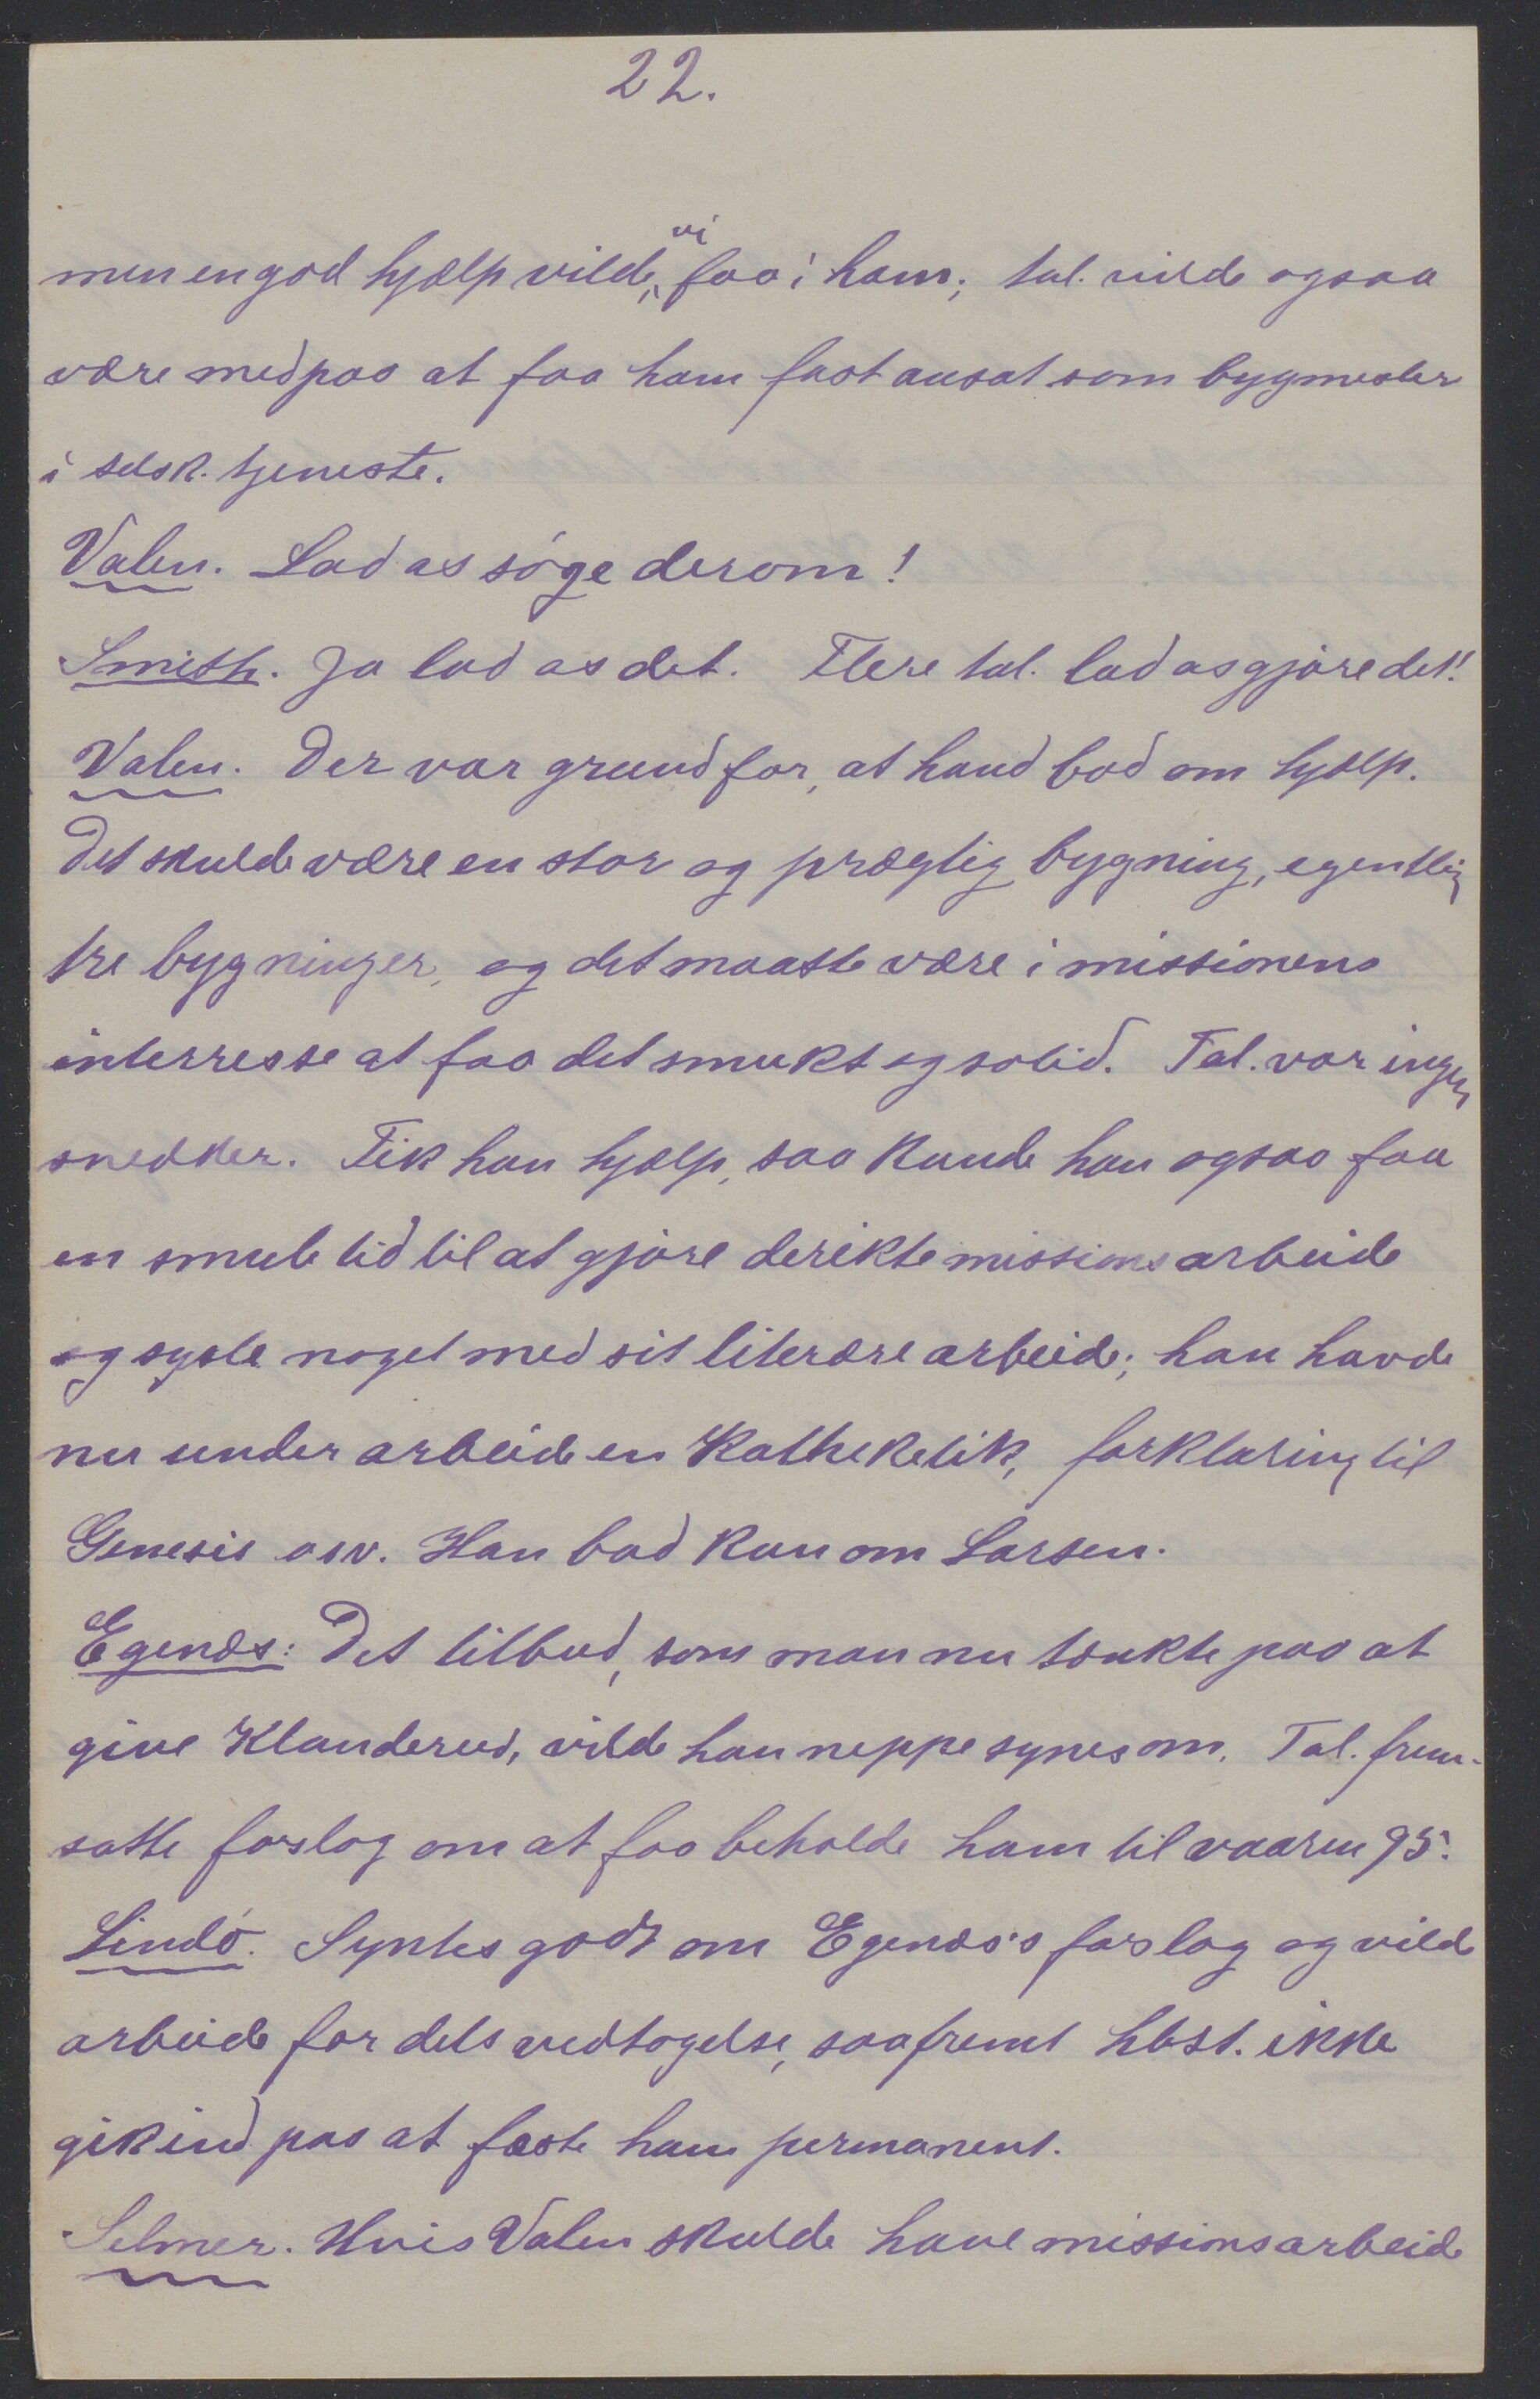 22.
men en god hjælp vilde vi faa i ham; tal. vilde ogsaa
være med paa at faa ham fast ansat som bygmester
i selsk. tjeneste.
Valen. Lad os søge derom!
Smith. Ja lad os det. Flere tal. lad os gjøre det!
Valen. Der var grund for, at hand bad om hjælp.
Det skulde være en stor og prægtig bygning, egentlig
tre bygninger, og det maatte være i missionens
interresse at faa det smukt og solid. Tal. var ingen
snedker. Fik han hjælp, saa kunde han ogsaa faa
en smule tid til at gjøre derikte missionsarbeide
og sysle noget med sit literære arbeide; han havde
nu under arbeide en Kathekelik, forklaring til
Genesis osv. Han bad kun om Larsen.
Egenæs: Det tilbud, som man nu tænkte paa at
give Klanderud, vilde han neppe synes om. Tal. frem-
satte forslag om at faa beholde ham til vaaren 95.
Lindø. Syntes godt om Egenæs's forslag og vilde
arbeide for dets vedtagelse, saafremt hbst. ikke
gik ind paa at fæste ham permanent.
Selmer. Hvis Valen skulde have missionsarbeide